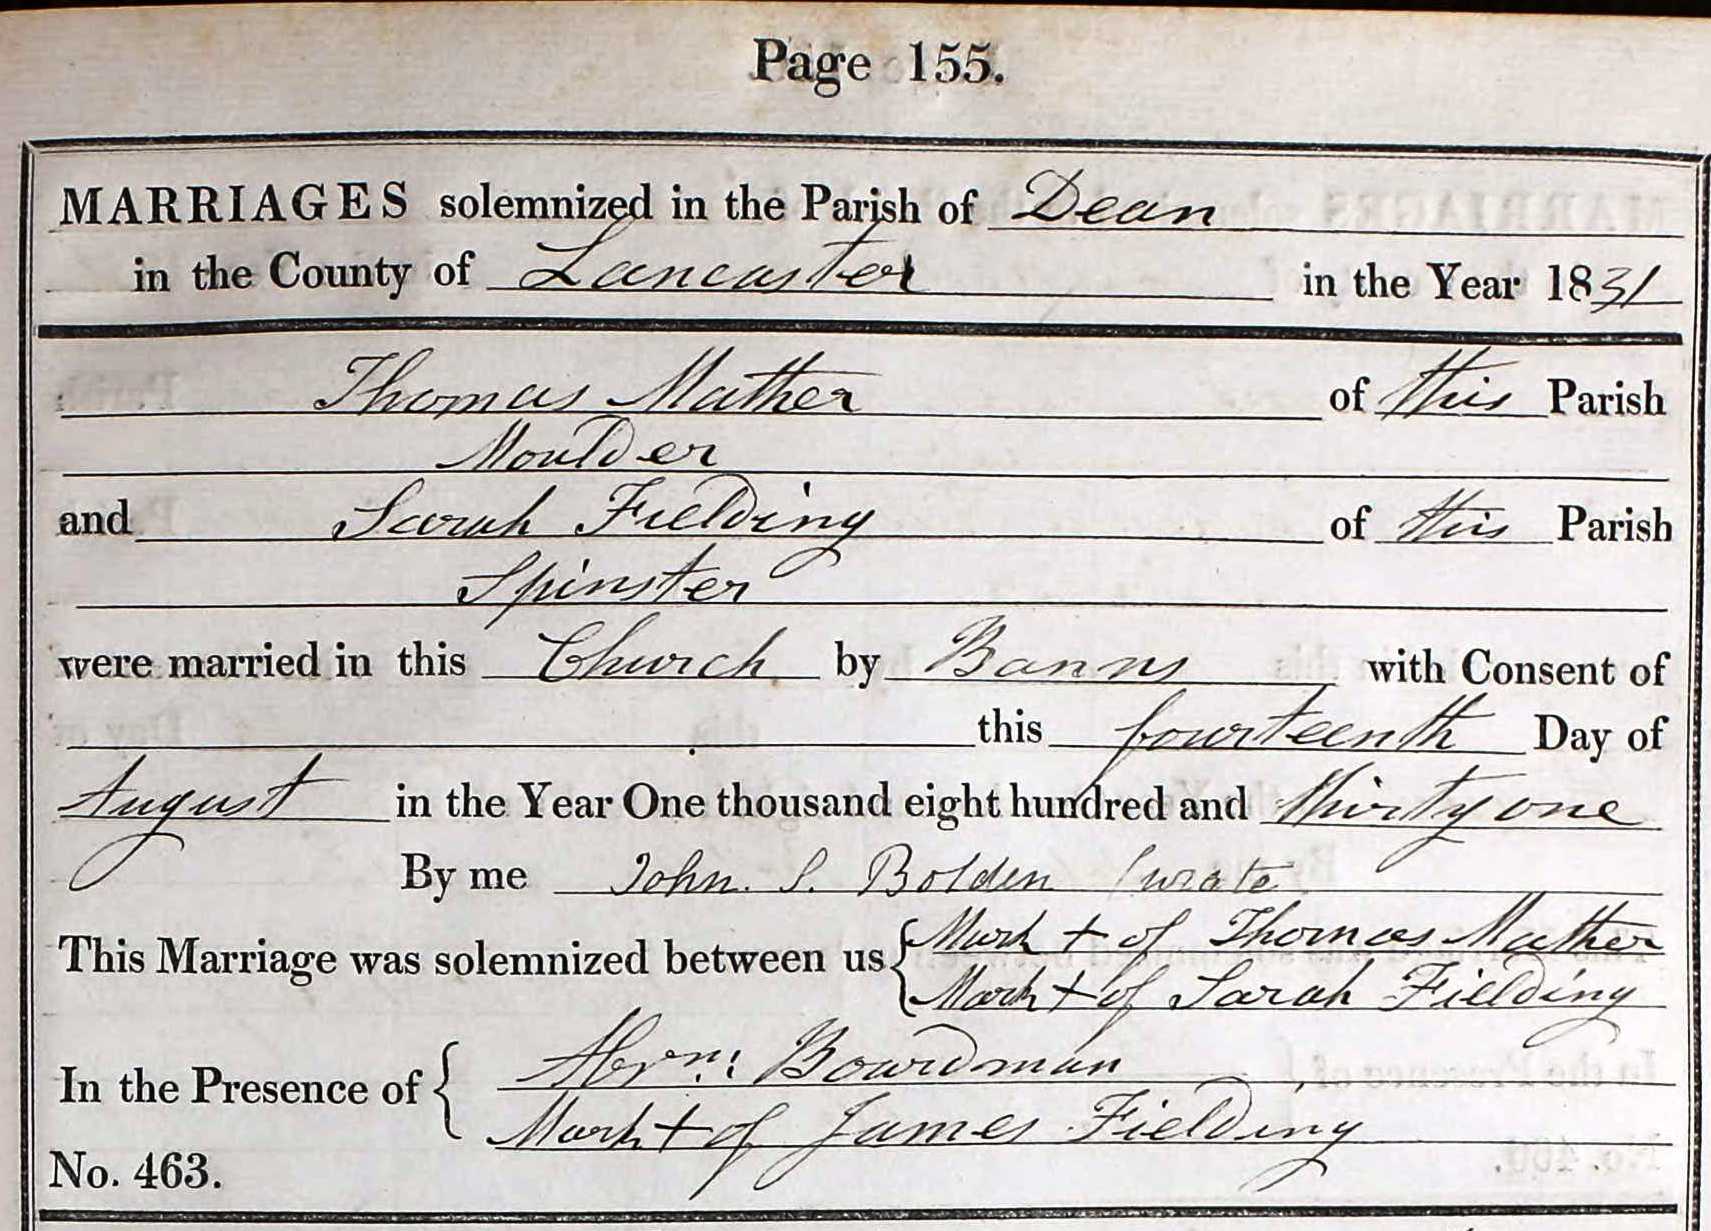 Page 155.
MARRIAGES solemnized in the Parish of Dean
in the County of Lancaster in the Year 1831
Thomas Mather of this Parish
Moulder
and Sarah Fielding of this Parish
Spinster
were married in this Church by Banns with Consent of
this fourteenth Day of
August in the Year One thousand eight hundred and thirty one
By me John. S. Bolden Curate
This Marriage was solemnized between us { Mark + of Thomas Mather
Mark + of Sarah Fielding
In the Presence of { Abrm: Boardman
Mark + of James Fielding
No. 463.